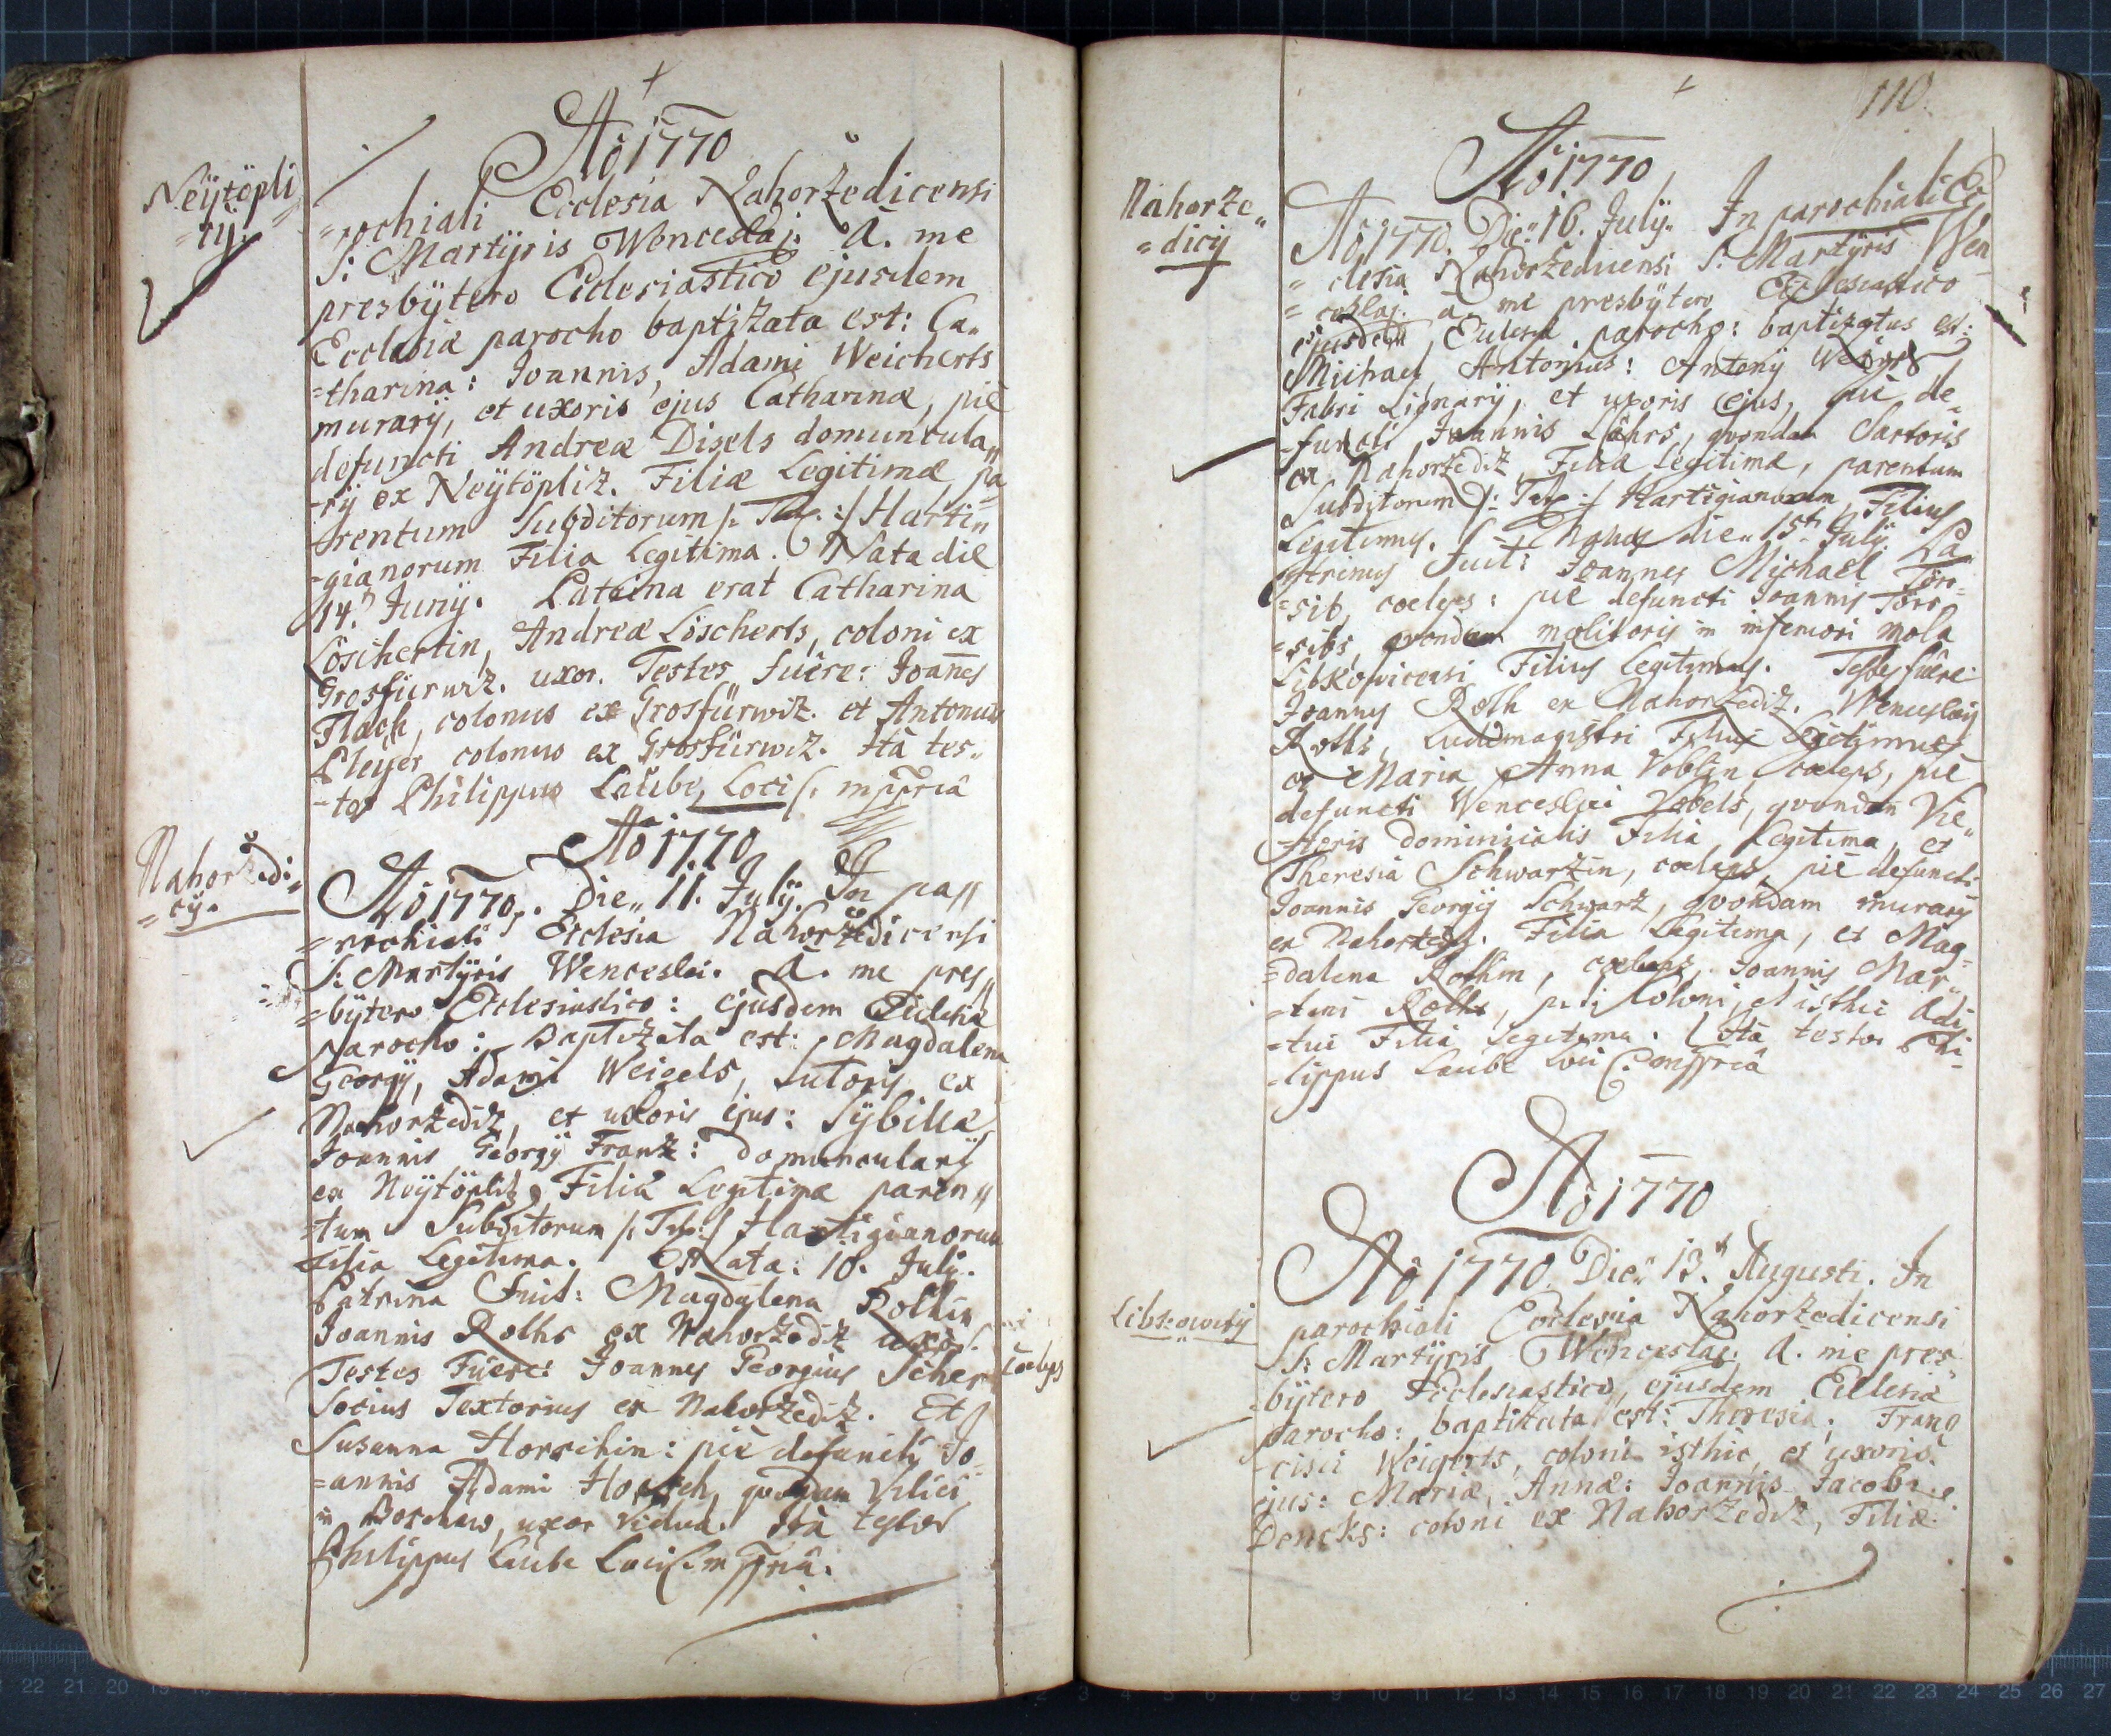 Aõ 1770
Neÿtöpli
=cij.
=rochiali Ecclesia Nahoržedicensi
S: Martÿris Wenceslaj. A. me
presbÿtero Ecclesiastico ejusdem
Ecclesiæ parocho baptizata est: Ca„
=tharina: Joannis, Adami Weicherts
murarÿ, et uxoris ejus Catharinæ, piè
defuncti Andreæ Disels domuncula„
=rÿ ex Neÿtöpliz. Filiæ Legitimæ pa
=rentum Subditorum /: Tit: :/ Hartin
=gianorum Filia Legitima. Nata die
14. Junÿ. Patrina erat Catharina
Löschertin, Andreæ Löscherts, coloni ex
Grosfürwiz. uxor. Testes fuêre: Joañes
Flach, colonus ex Grosfürwiz. et Antonius
Pleyer colonus ex Grosfürwiz. Ità tes„
=tor Philippus Laube, Loci C. mppria
Aõ 1770
Nahoržedi„
=cÿ.
Aõ 1770. Die„ 11. Julÿ. In pa„
=rochiali Ecclesia Nahoržedicensi
S: Martÿris Wenceslai. A. me pres„
=bÿtero Ecclesiastico: ejusdem Ecclesiæ
parocho: Baptizata est: Magdalena
Georgÿ, Adami Weigels, Sutoris ex
Nahoržediz, et uxoris ejus: Sÿbillæ,
Joannis Georgÿ Frantz: domuncularÿ
ex Neÿtöpliz, Filiæ Legitimæ paren„
=tum Subditorum /: Tit: :/ Hartigianorum
Filia Legitima. Nata: 10. Julÿ.
Patrina Fuit: Magdalena Rothin
Joannis Roths ex Nahoržediz uxor.
Testes Fuere: Joannes Georgius Scher cœlebs
Socius Textorius ex Nahoržediz. Et
Susanna Horschin: piè defuncti Jo„
=annis Adami Horsch, quondam Vilici
in uxor vidua. Ità testor
Philippus Laube Loci C. mppria.
110.
Aõ 1770
Nahorže„
=dicÿ
Aõ 1770. Die„ 16. Julÿ. In parochiali Ec
=clesia Nahoržedicensi S: Martÿris Wen
=ceslaj. a me presbÿtero Ecclesiastico
ejusdem Ecclesiæ parocho: baptizatus est:
Michael Antonius: Antonÿ
Fabri Lignarÿ, et uxoris ejus, piè de„
=functi Joannis Löhrs, quondam Sartoris
ex Nahoržediz Filiæ Legitimæ, parentum
Subditorum /: Tit: :/ Hartigianorum Filius
Legitimus. Natus die„ 15. Julÿ. Pa
=trinus Fuit: Joannes Michael Törs
=sib, cœlebs: piè defuncti Joannis Törs„
=sibs, quondam molitoris in inferiori mola
Libkovicensi Filius Legitimus. Testes fuêre:
Joannes Roth ex Nahoržediz. Wenceslaÿ
Roths, Ludimagistri Filius Legitimus
et Maria Anna Voblin, cœlebs, piè
defuncti Wenceslai Vobels, quondam Vie„
=toris Dominicalis Filia Legitima, et
Theresia Schwartzin, cœlebs, piè defuncti
Joannis Georgÿ Schwartz, quondam murarÿ
ex Nahoržediz. Filia Legitima, et Mag„
=dalena Rothin, cœlebs, Joannis Mar„
=tini Roths, p: t: Coloni, et isthic Ædi
=tui Filia Legitima. Ità testor Phi
=lippus Laube Loci C. mppria
Aõ 1770
Aõ 1770. Die„ 13. Augusti. In
Libkowitÿ
parochiali Ecclesia Nahoržedicensi
S: Martÿris Wenceslai. A. me pres„
=bÿtero Ecclesiastico, ejusdem Ecclesiæ
parocho: baptizata est: Theresia: Fran
=cisci Weigerts, coloni isthic, et uxoris
ejus: Mariæ, Annæ: Joannis Jacobi
Dencks: coloni ex Nahoržediz, Filiæ